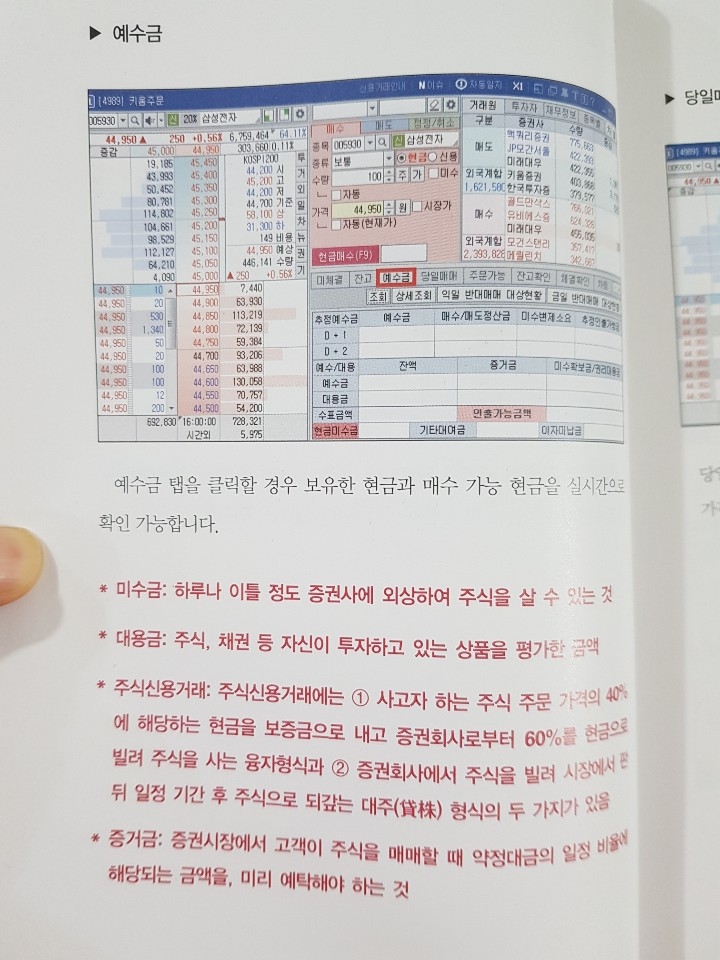 ▶ 예수금
[4989] 키움주문
005930 신 20% 삼성전자
44,950 ▲ 250 +0.56% 6,759,464 64.11%
증감 45,000 44,950 303,660 0.11%
19,185 45,450 KOSPI200
43,993 45,400 44,200 시
50,452 45,350 44,950 고
80,781 45,300 44,200 저
114,802 45,250 44,700 기준
104,661 45,200 58,100 상
98,529 45,150 31,300 하
112,127 45,100 149 비용
64,210 45,050 44,950 예상
4,090 45,000 446,141 수량
▲ 250 +0.56%
투 거 외 일 차 뉴 권 기
44,950 10 44,950 7,440
44,950 20 44,900 63,930
44,950 530 44,850 113,219
44,950 1,340 44,800 72,139
44,950 50 44,750 59,384
44,950 20 44,700 93,206
44,950 100 44,650 63,988
44,950 100 44,600 130,058
44,950 12 44,550 70,757
44,950 200 44,500 54,200
692,830 16:00:00 728,321
시간외 5,975
신용거래안내 N이슈 자동일지 XI
매수 매도 정정/취소
종목 005930 신 삼성전자
종류 보통 현금 신용
수량 100 주 가 미수
자동
가격 44,950 원 시장가
자동(현재가)
현금매수(F9)
거래원 투자자 재무정보 종목별
구분 증권사 수량
맥쿼리증권 775,663
매도 JP모간서울 422,393
미래대우 422,355
외국계합 키움증권 403,868
1,621,580 한국투자증 379,577
골드만삭스 766,021
매수 유비에스증 624,326
미래대우 455,035
외국계합 모건스탠리 357,417
2,393,828 메릴린치 342,667
미체결 잔고 예수금 당일매매 주문가능 잔고확인 체결확인 차트
조회 상세조회 익일 반대매매 대상현황 금일 반대매매 대상현황
추정예수금 예수금 매수/매도정산금 미수변제소요 추정인출가능금
D + 1
D + 2
예수/대용 잔액 증거금 미수확보금/권리대용금
예수금
대용금
수표금액 인출가능금액
현금미수금 기타대여금 이자미납금
예수금 탭을 클릭할 경우 보유한 현금과 매수 가능 현금을 실시간으로
확인 가능합니다.
* 미수금: 하루나 이틀 정도 증권사에 외상하여 주식을 살 수 있는 것
* 대용금: 주식, 채권 등 자신이 투자하고 있는 상품을 평가한 금액
* 주식신용거래: 주식신용거래에는 ① 사고자 하는 주식 주문 가격의 40%
에 해당하는 현금을 보증금으로 내고 증권회사로부터 60%를 현금으로
빌려 주식을 사는 융자형식과 ② 증권회사에서 주식을 빌려 시장에서 판
뒤 일정 기간 후 주식으로 되갚는 대주(貸株) 형식의 두 가지가 있음
* 증거금: 증권시장에서 고객이 주식을 매매할 때 약정대금의 일정 비율에
해당되는 금액을, 미리 예탁해야 하는 것
▶ 당일매
[4989] 키움주
005930
44,950
증감
당일